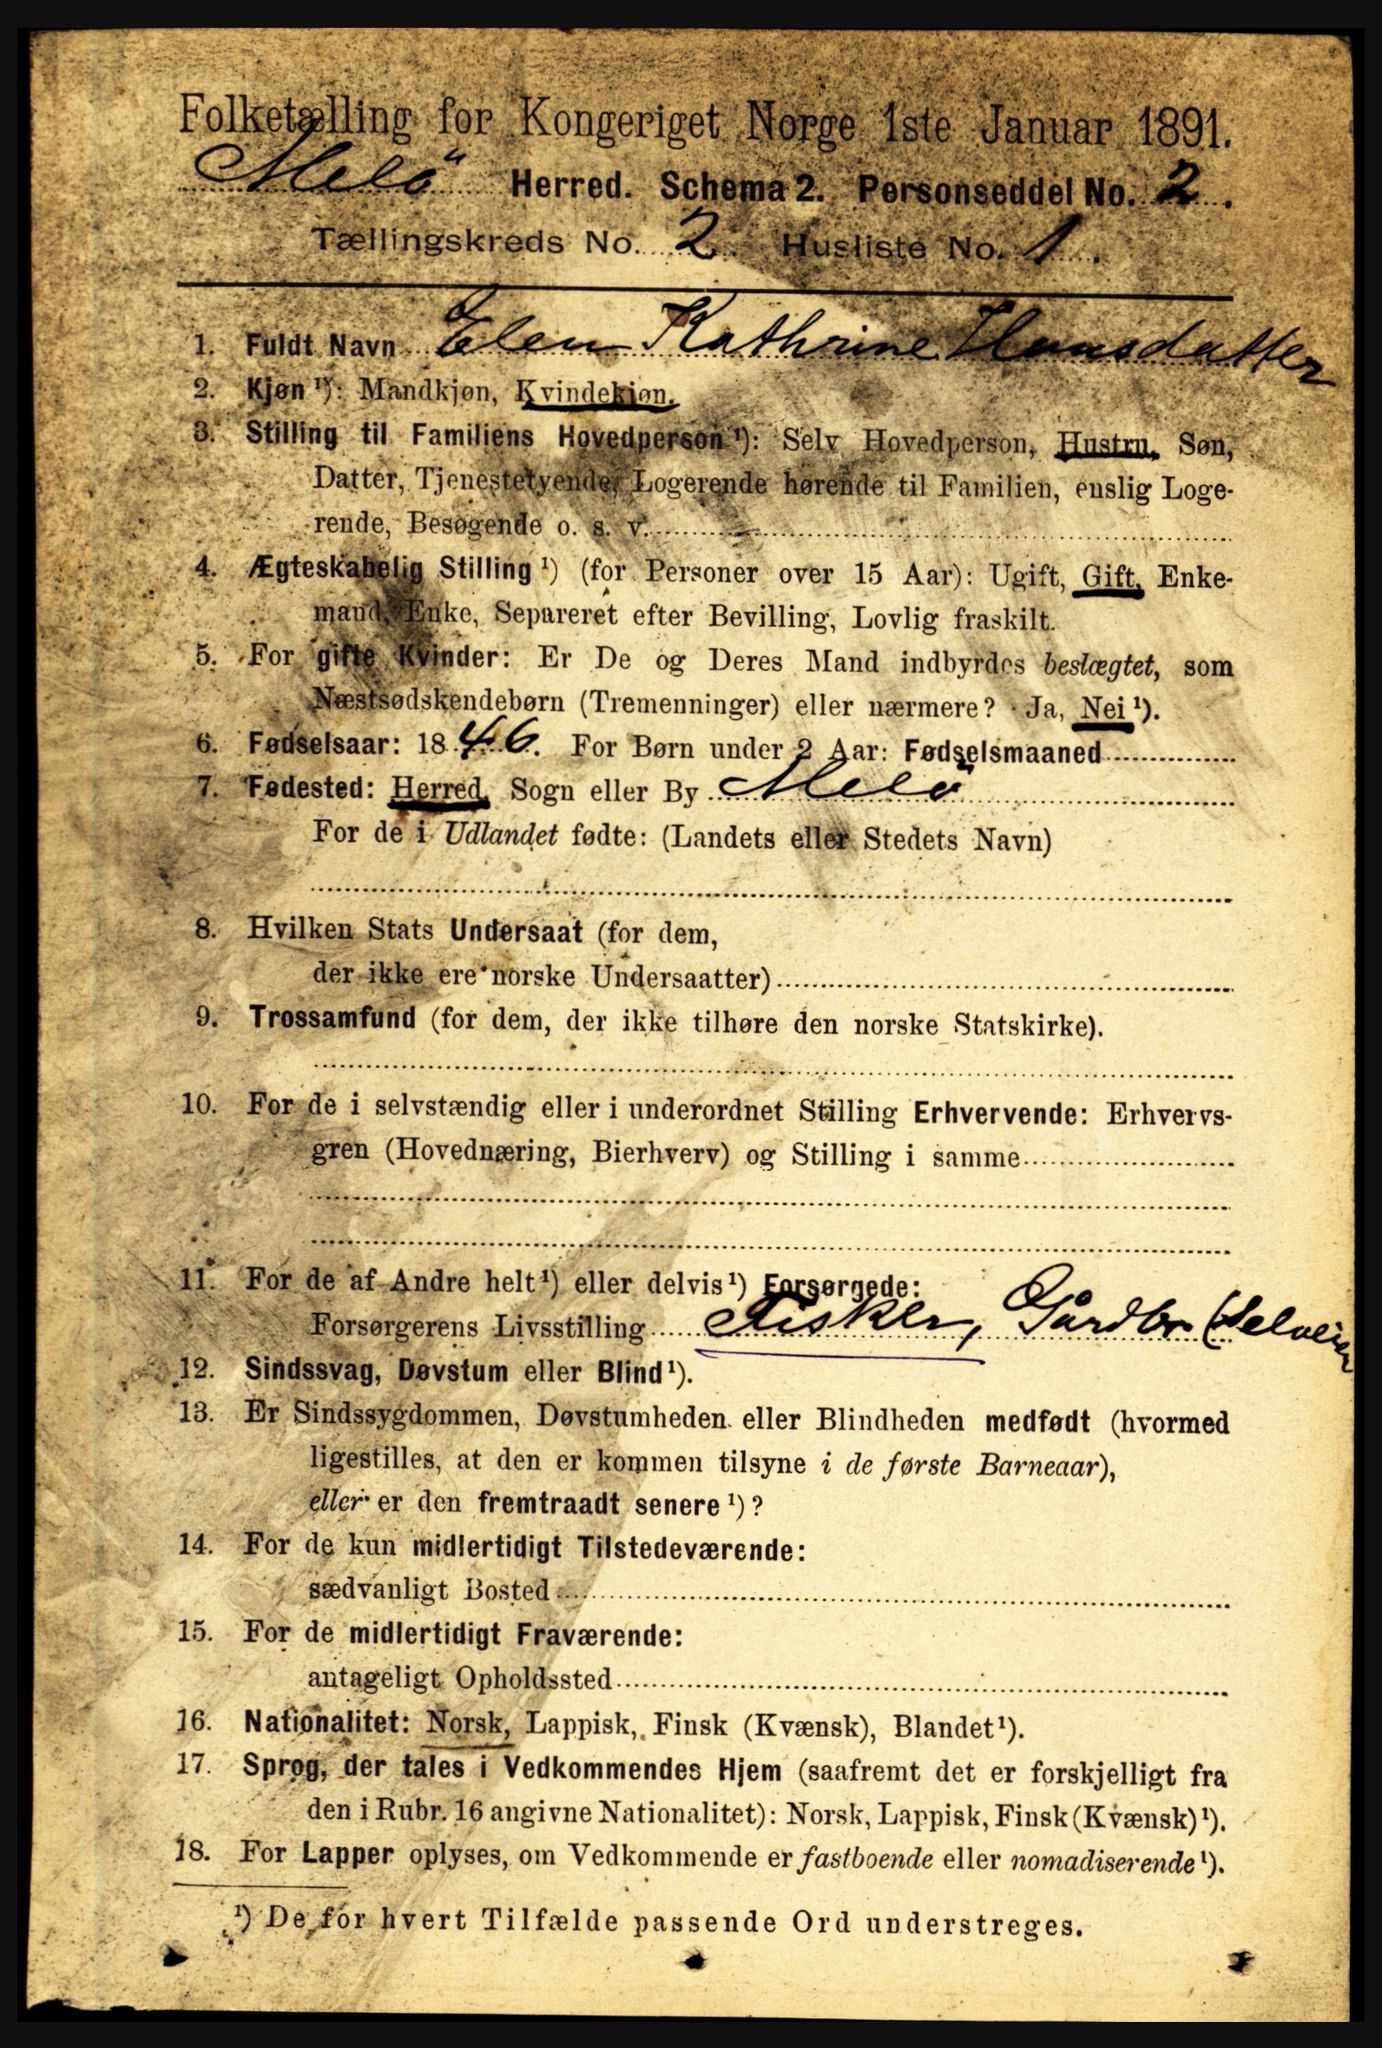 Folketælling for Kongeriget Norge 1ste Januar 1891.
Melö Herred. Schema 2. Personseddel No. 2.
Tællingskreds No. 2 Husliste No. 1.
1. Fuldt Navn Elen Kathrine Hansdatter
2. Kjøn ¹): Mandkjøn, Kvindekjøn.
3. Stilling til Familiens Hovedperson ¹): Selv Hovedperson, Hustru, Søn,
Datter, Tjenestetyende, Logerende hørende til Familien, enslig Loge-
rende, Besøgende o. s. v.
4. Ægteskabelig Stilling ¹) (for Personer over 15 Aar): Ugift, Gift, Enke-
mand, Enke, Separeret efter Bevilling, Lovlig fraskilt.
5. For gifte Kvinder: Er De og Deres Mand indbyrdes beslægtet, som
Næstsødskendebørn (Tremenninger) eller nærmere? Ja, Nei ¹).
6. Fødselsaar: 1846. For Børn under 2 Aar: Fødselsmaaned
7. Fødested: Herred, Sogn eller By Melö
For de i Udlandet fødte: (Landets eller Stedets Navn)
8. Hvilken Stats Undersaat (for dem,
der ikke ere norske Undersaatter)
9. Trossamfund (for dem, der ikke tilhøre den norske Statskirke).
10. For de i selvstændig eller i underordnet Stilling Erhvervende: Erhvervs-
gren (Hovednæring, Bierhverv) og Stilling i samme
11. For de af Andre helt ¹) eller delvis ¹) Forsørgede:
Forsørgerens Livsstilling Fisker, Gårdbr (Selveier
12. Sindssvag, Døvstum eller Blind ¹).
13. Er Sindssygdommen, Døvstumheden eller Blindheden medfødt (hvormed
ligestilles, at den er kommen tilsyne i de første Barneaar),
eller er den fremtraadt senere ¹)?
14. For de kun midlertidigt Tilstedeværende:
sædvanligt Bosted
15. For de midlertidigt Fraværende:
antageligt Opholdssted
16. Nationalitet: Norsk, Lappisk, Finsk (Kvænsk), Blandet ¹).
17. Sprog, der tales i Vedkommendes Hjem (saafremt det er forskjelligt fra
den i Rubr. 16 angivne Nationalitet): Norsk, Lappisk, Finsk (Kvænsk) ¹).
18. For Lapper oplyses, om Vedkommende er fastboende eller nomadiserende ¹).
¹) De for hvert Tilfælde passende Ord understreges.